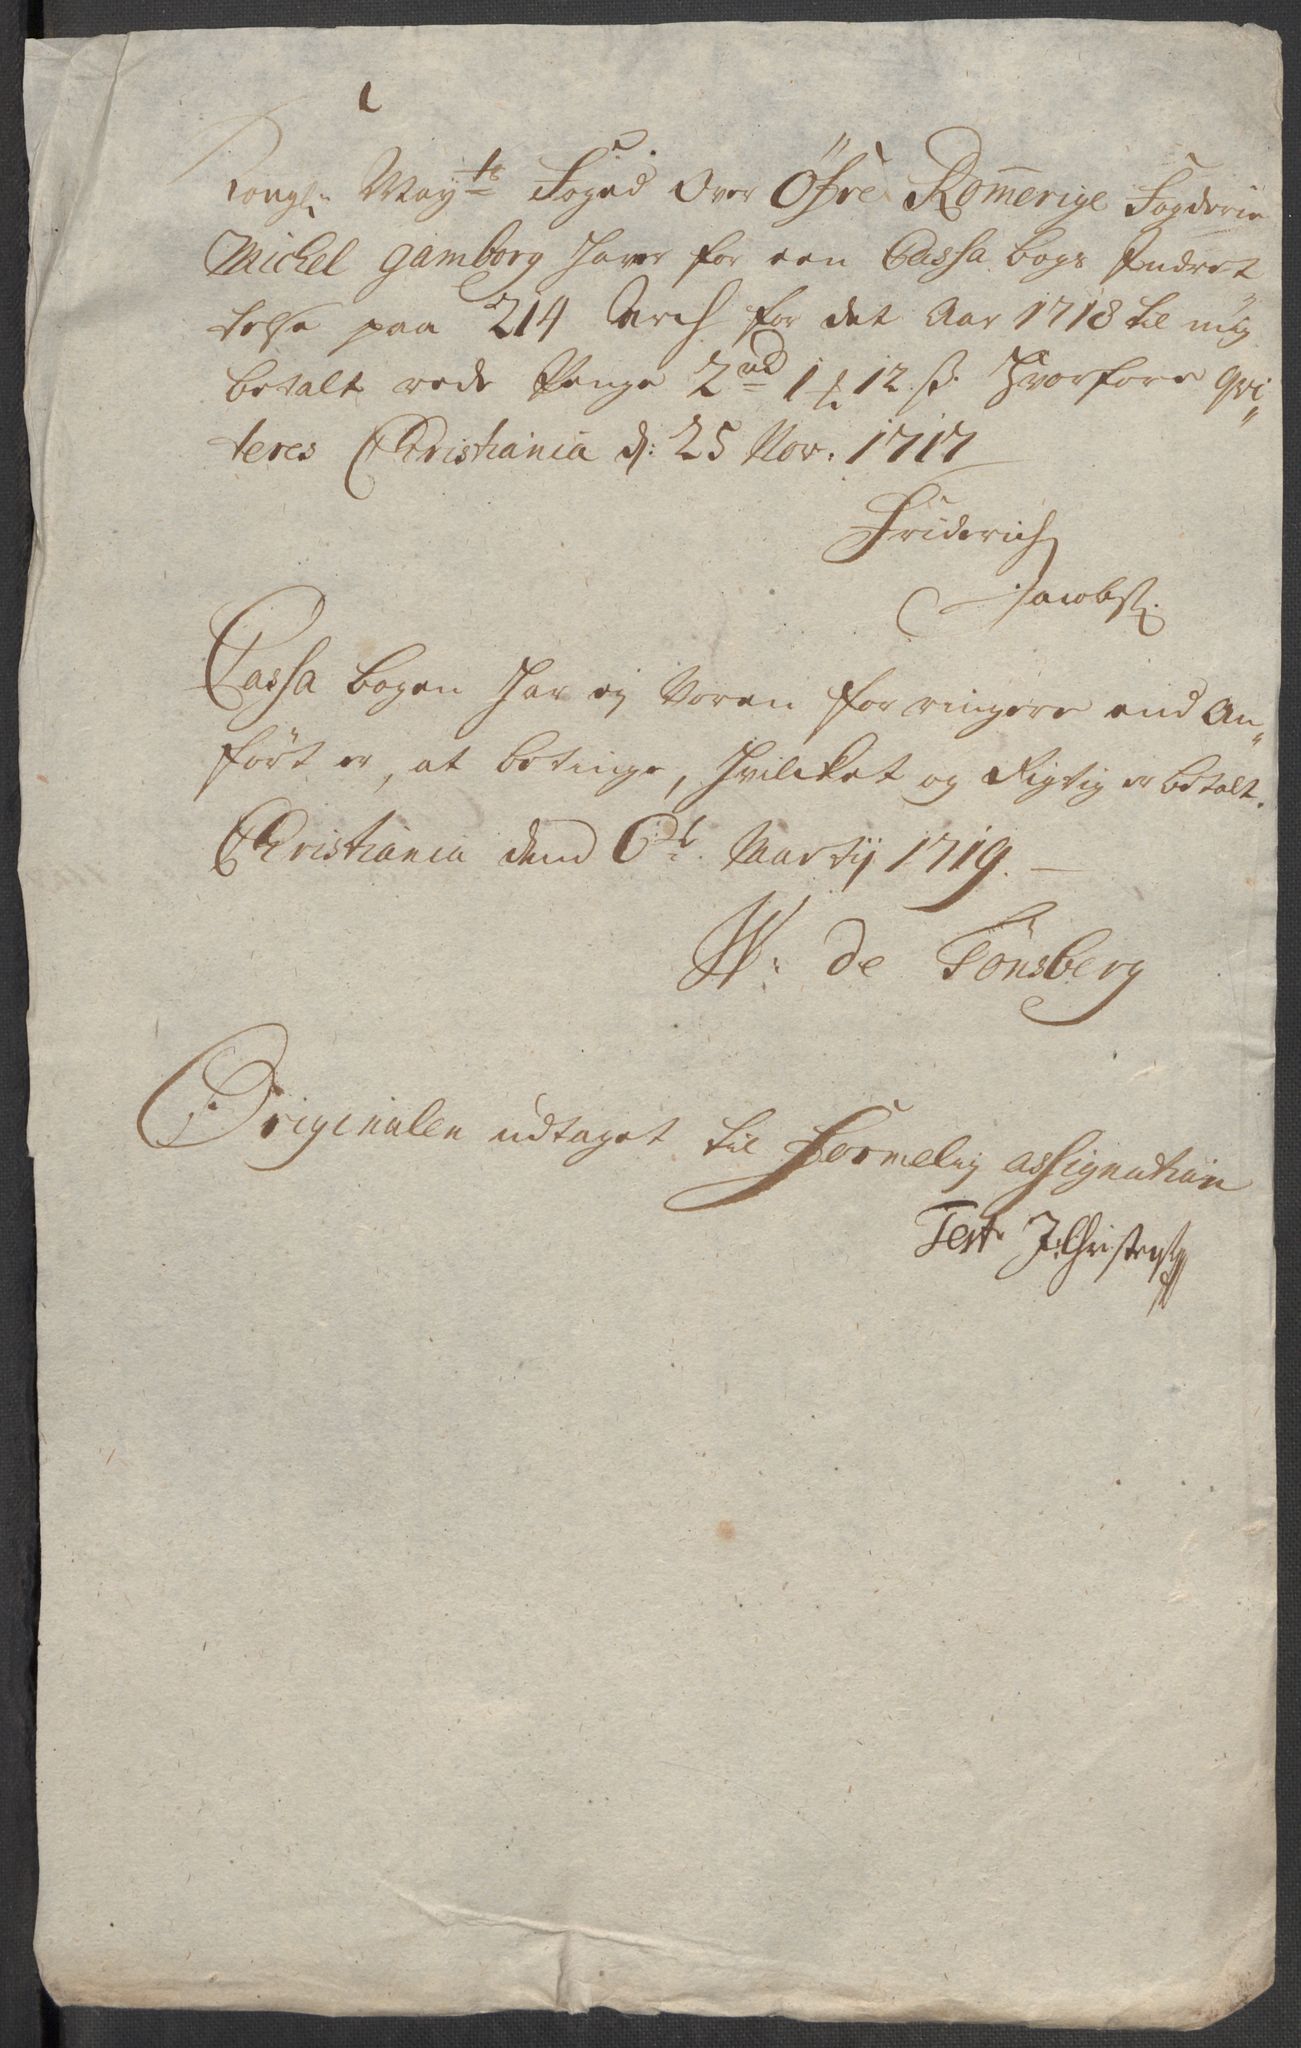 Kongl: May.te Foged over Öfre Rom̄erige Fogderie
Michel Gamborg haver for een Cassa bogs Indret
telse paa 214 Arch for det Aar 1718 til mig
betalt rede Penge 2 rd 1 ₶ 12 ß. Hvorfore qvi„
teres Christiania d: 25 Nov. 1717
Friderich
Jacobs:
Cassa bogen har ej været for ringere end An„
fört er, at betinge, hvilcket og Rigtig er betalt.
Christiania dend 6t: Martij 1719.
W: de Tönsberg
Originalen udtaget til Formelig assignation
Test J: Christens